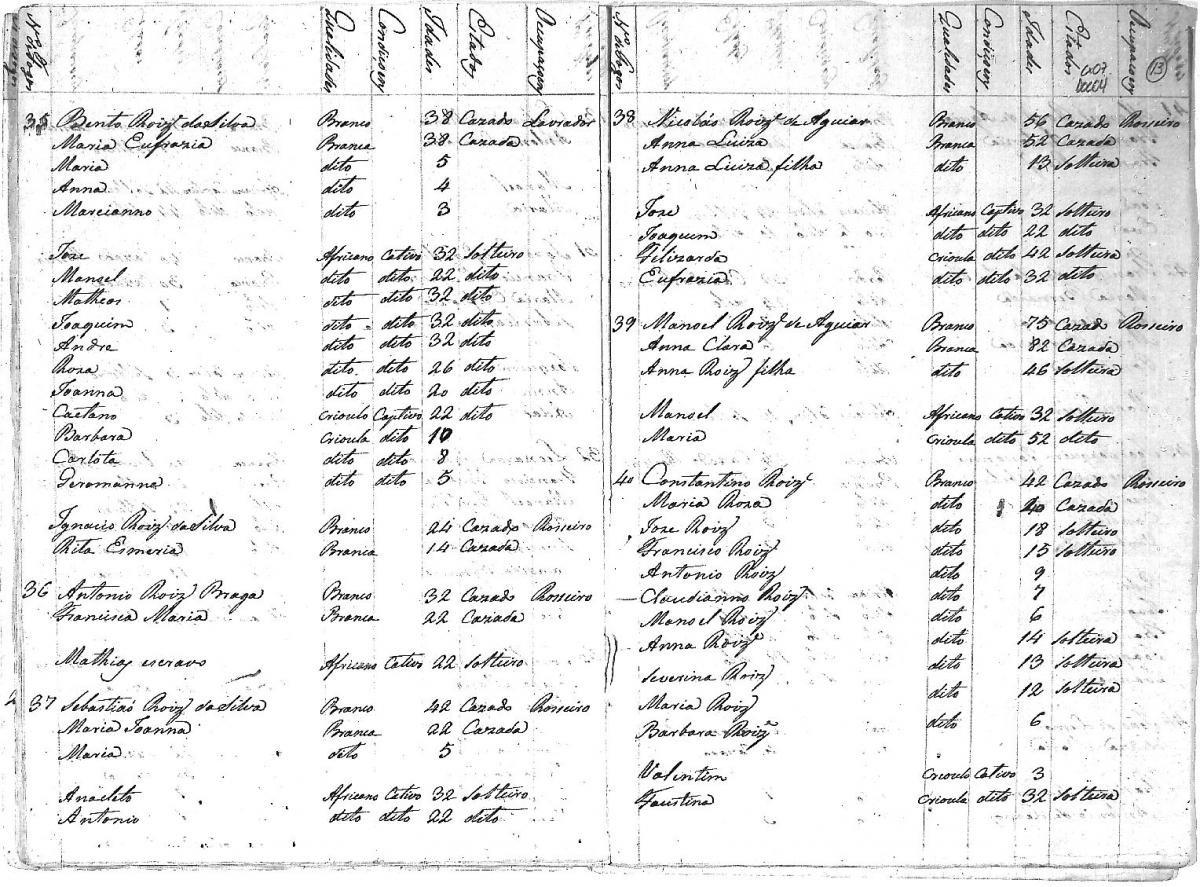 Nº dos fogos Qualidades Condiçoens Idades Estados Occupaçoens
35 Bento Roiz da Silva Branco 38 Cazado Lavrador
Maria Eufrazia Branca 38 Cazada
Maria dito 5
Anna dito 4
Marcianno dito 3
Joze Africano Cativo 32 Solteiro
Manoel dito dito 22 dito
Matheos dito dito 32 dito
Joaquim dito dito 32 dito
Andre dito dito 32 dito
Roza dito dito 26 dito
Joanna dito dito 20 dito
Caetano Crioulo Captivo 22 dito
Barbara Crioula dito 10
Carlota dito dito 8
Geromanna dito dito 5
Ignacio Roiz da Silva Branco 24 Cazado Rosseiro
Rita Esmeria Branca 14 Cazada
36 Antonio Roiz Braga Branco 32 Cazado Rosseiro
Francisca Maria Branca 22 Cazada
Mathias escravo Africano Cativo 22 Solteiro
2 37 Sebastiaó Roiz da Silva Branco 42 Cazado Rosseiro
Maria Joanna Branca 22 Cazada
Maria dito 5
Anacleto Africano Cativo 32 Solteiro
Antonio dito dito 22 dito
Nº dos fogos Qualidades Condiçoens Idades Estados Occupaçoens 13
38 Nicoláo Roiz de Aguiar Branco 56 Cazado Rosseiro
Anna Luiza Branca 52 Cazada
Anna Luiza filha dito 13 Solteira
Joze Africano Captivo 32 Solteiro
Joaquim dito dito 22 dito
Felizarda Crioula dito 42 Solteira
Eufrazia dito dito 32 dito
39 Manoel Roiz de Aguiar Branco 75 Cazado Rosseiro
Anna Clara Branca 82 Cazada
Anna Roiz filha dito 46 Solteira
Manoel Africano Cativo 32 Solteiro
Maria Crioula dito 52 dito
40 Constantino Roiz Branco 42 Cazado Rosseiro
Maria Roza dito 40 Cazada
Joze Roiz dito 18 Solteiro
Francisco Roiz dito 15 Solteiro
Antonio Roiz dito 9
Claudianno Roiz dito 7
Manoel Roiz dito 6
Anna Roiz dito 14 Solteira
Severina Roiz dito 13 Solteira
Maria Roiz dito 12 Solteira
Barbara Roiz dito 6
Valintim Crioulo Cativo 3
Faustina Crioula dito 32 Solteira